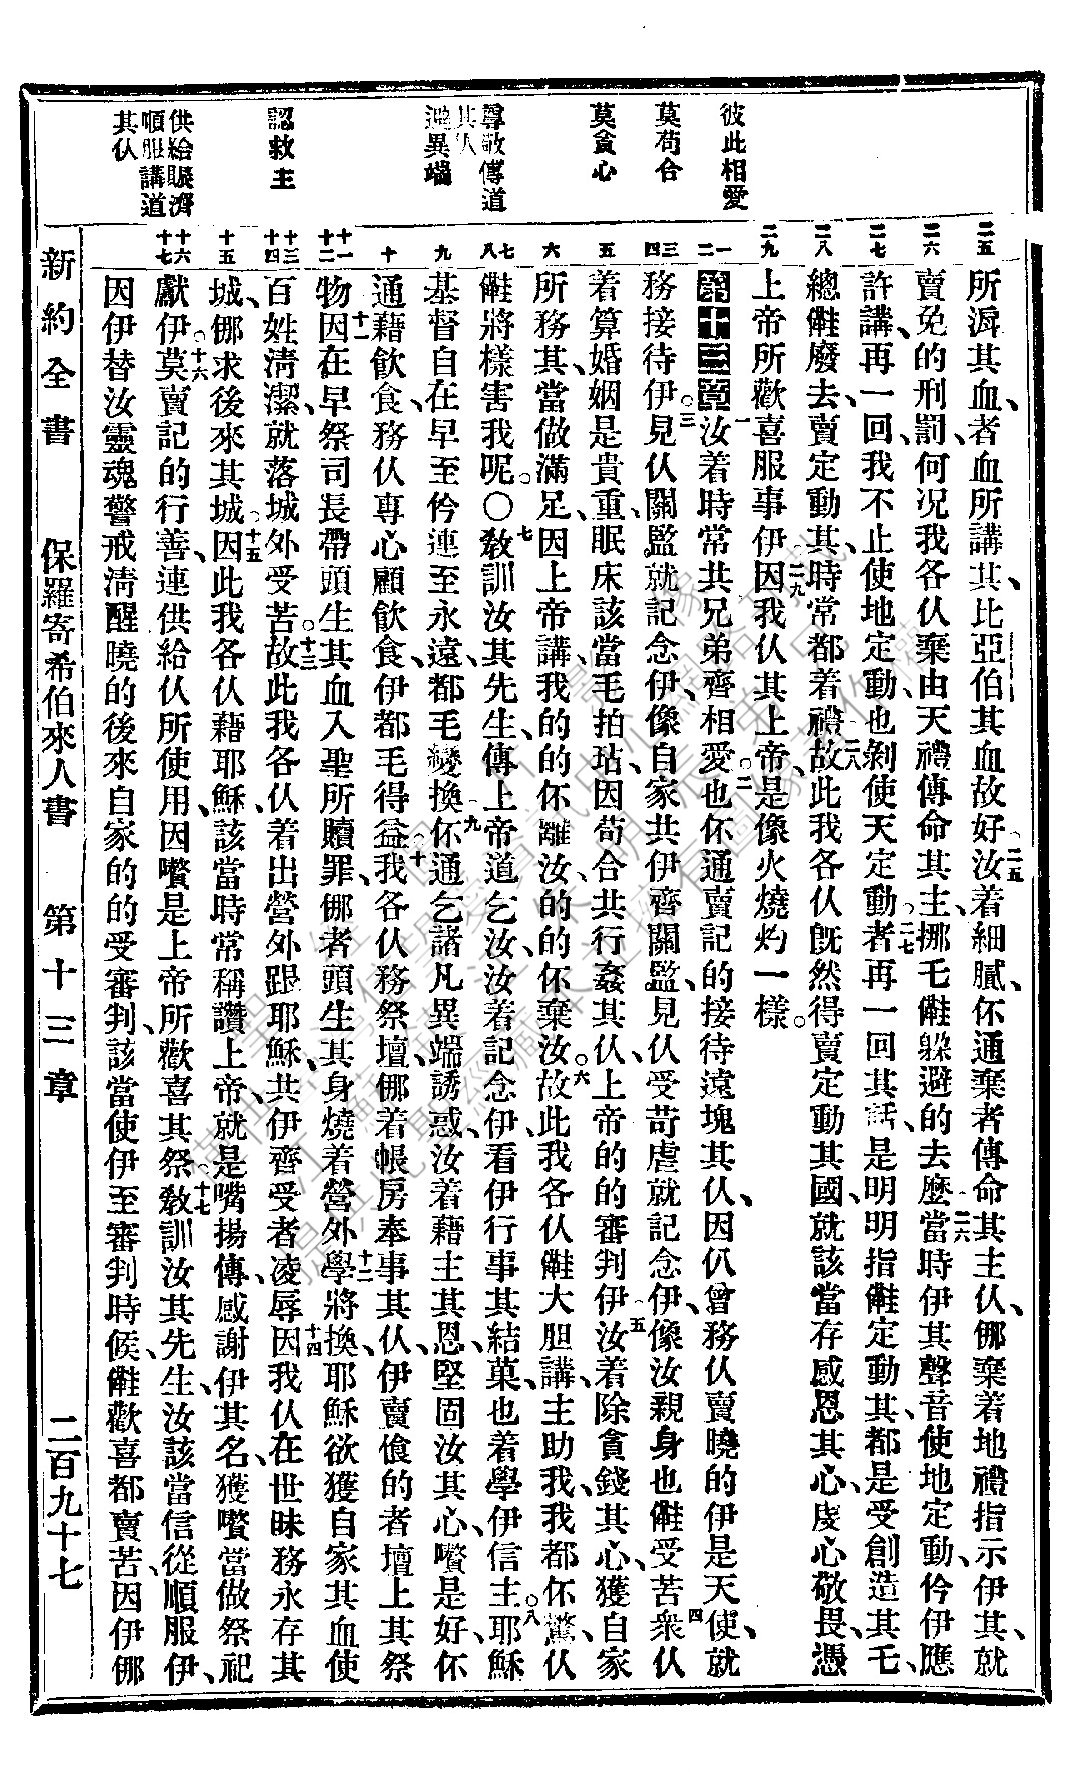 彼此相愛
莫苟合
莫貪心
尊敬傳道
其仈
避異端
認救主
供給賑濟
順服講道
其仈
二五
二六
二七
二八
二九
一
二
三
四
五
六
七
八
九
十
十一
十二
十三
十四
十五
十六
十七
所淂其血、者血所講其、比亞伯其血故好、二五汝着細膩、伓通棄者傳命其主、仈、挪棄着地禮指示伊其、就
賣免的刑罰、何況我各仈棄由天禮傳命其主、挪乇㑚躲避的去麽、二六當時伊其聲音使地定動、仱伊應
許講、再一回、我不止使地定動、也剝使天定動、二七者再一回其話、是明明指㑚定動其、都是受創造其乇、
總㑚廢去、賣定動其、時常都着禮、二八故此我各仈旣然得賣定動其國、就該當存感恩其心、虔心敬畏、憑
上帝所歡喜服事伊、二九因我仈其上帝、是像火燒灼一樣。
第十三章一汝着時常共兄弟齊相愛、二也伓通賣記的接待遠塊其仈、因仈曾務仈賣曉的伊是天使、就
務接待伊。三見仈關監、就記念伊、像自家共伊齊關監、見仈受苛虐、就記念伊、像汝親身也㑚受苦、四衆仈
着算婚姻是貴重、眠床該當毛拍玷、因苟合共行姦其仈、上帝的的審判伊、五汝着除貪錢其心、獲自家
所務其、當做滿足、因上帝講、我的的伓離汝、的的伓棄汝。六故此我各仈㑚大胆講、主助我、我都伓驚、仈
㑚將樣害我呢。〇七教訓汝其先生、傳上帝道乞汝、汝着記念伊、看伊行事其結菓、也着學伊信主。八耶穌
基督自在早至仱、連至永遠、都毛變換、九伓通乞諸凡異端誘惑、汝着藉主其恩、堅固汝其心、嚽是好、伓
通藉飲食、務仈專心顧飲食、伊都毛得益、十我各仈務祭壇、挪着帳房奉事其仈、伊賣偷的者壇上其祭
物、十一因在早祭司長帶頭生其血入聖所贖罪、挪者頭生其身燒着營外、十二學將換、耶穌欲獲自家其血使
百姓清潔、就落城外受苦。十三故此我各仈着出營外跟耶穌、共伊齊受者凌辱、十四因我仈在世昧務永存其
城、挪求後來其城、十五因此我各仈藉耶穌、該當時常稱讚上帝、就是嘴揚傳、感謝伊其名、獲嚽當做祭祀
獻伊。十六莫賣記的行善、連供給仈所使用、因嚽是上帝所歡喜其祭、十七教訓汝其先生、汝該當信從順服伊、
因伊替汝靈魂警戒清醒、曉的後來自家的的受審判、該當使伊至審判時候、㑚歡喜都賣苦、因伊挪
新約全書　保羅寄希伯來人書　第十三章　二百九十七